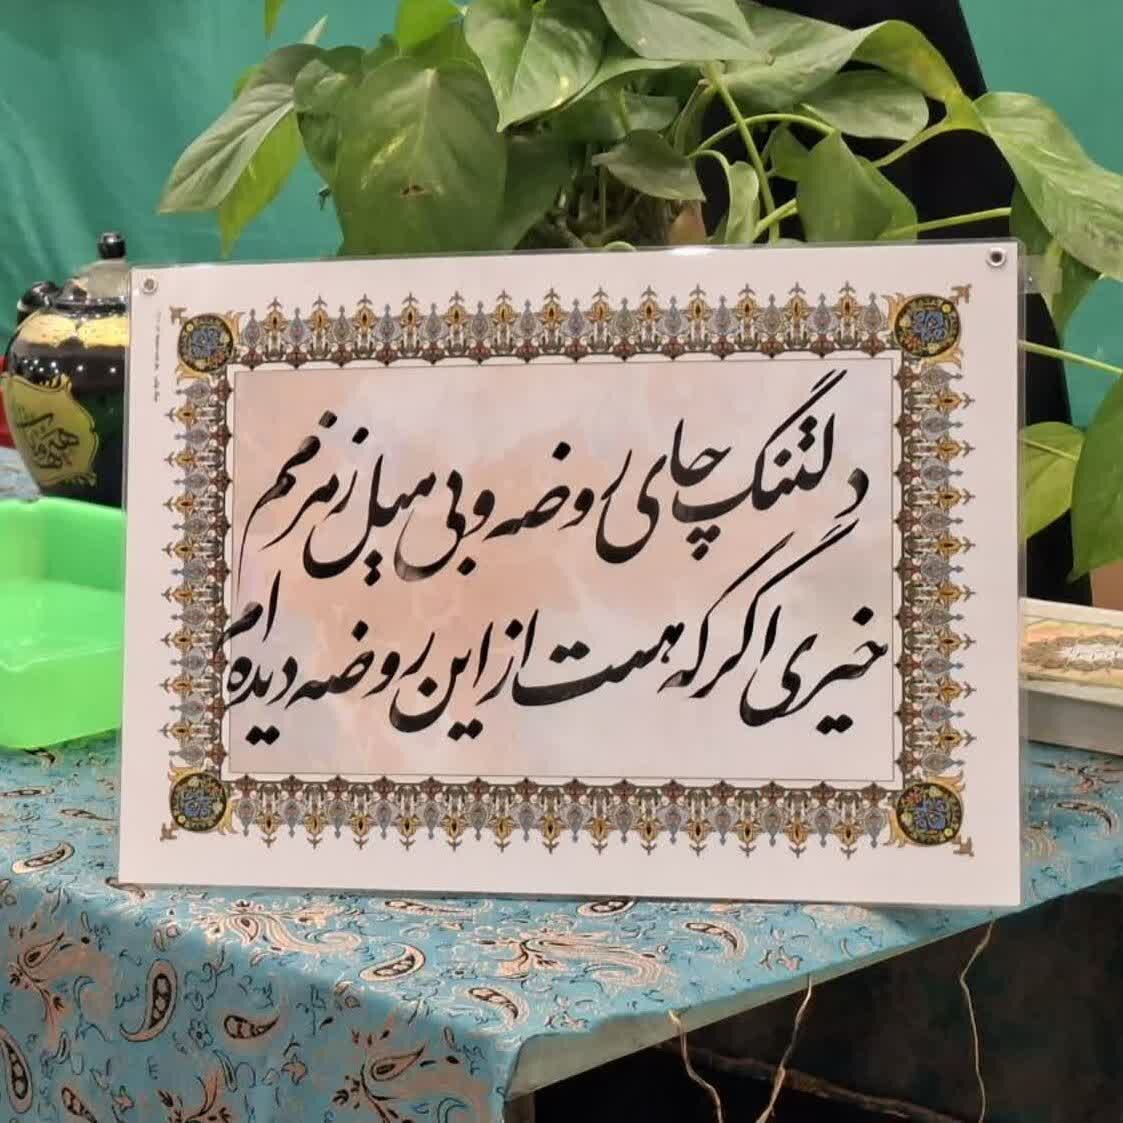 دلتنگ چای روضه و بی میل زمزمم
خیری اگر که هست از این روضه دیده ام